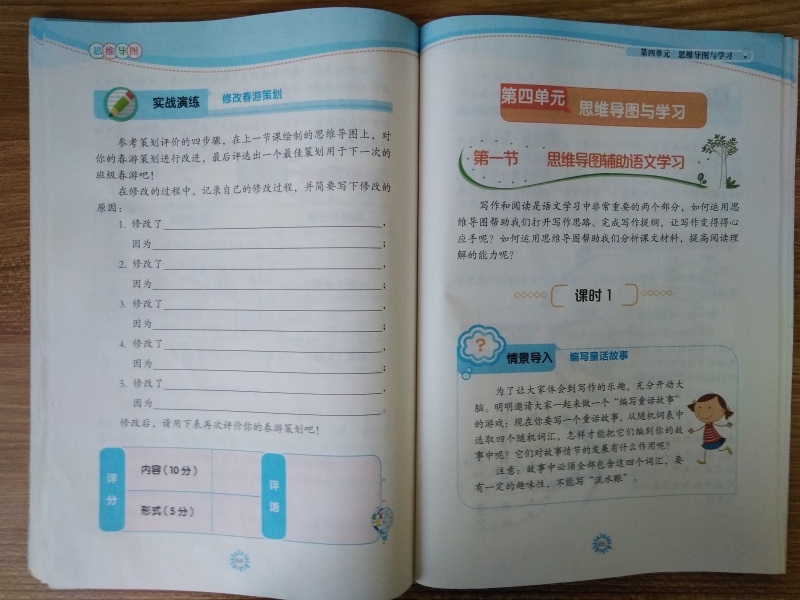 思维导图
实战演练 修改春游策划
参考策划评价的四步骤，在上一节课绘制的思维导图上，对
你的春游策划进行改进，最后评选出一个最佳策划用于下一次的
班级春游吧！
在修改的过程中，记录自己的修改过程，并简要写下修改的
原因：
1. 修改了，
因为；
2. 修改了，
因为；
3. 修改了，
因为；
4. 修改了，
因为；
5. 修改了，
因为。
修改后，请用下表再次评价你的春游策划吧！
评分
内容（10分）
形式（5分）
评语
第四单元 思维导图与学习
第四单元 思维导图与学习
第一节 思维导图辅助语文学习
写作和阅读是语文学习中非常重要的两个部分，如何运用思
维导图帮助我们打开写作思路、完成写作提纲，让写作变得得心
应手呢？如何运用思维导图帮助我们分析课文材料，提高阅读理
解的能力呢？
课时1
?
情景导入 编写童话故事
为了让大家体会到写作的乐趣，充分开动大
脑。明明邀请大家一起来做一个“编写童话故事”
的游戏：现在你要写一个童话故事，从随机词表中
选取四个随机词汇，怎样才能把它们编到你的故
事中呢？它们对故事情节的发展有什么作用呢？
注意：故事中必须全部包含这四个词汇，要
有一定的趣味性，不能写“流水账”。